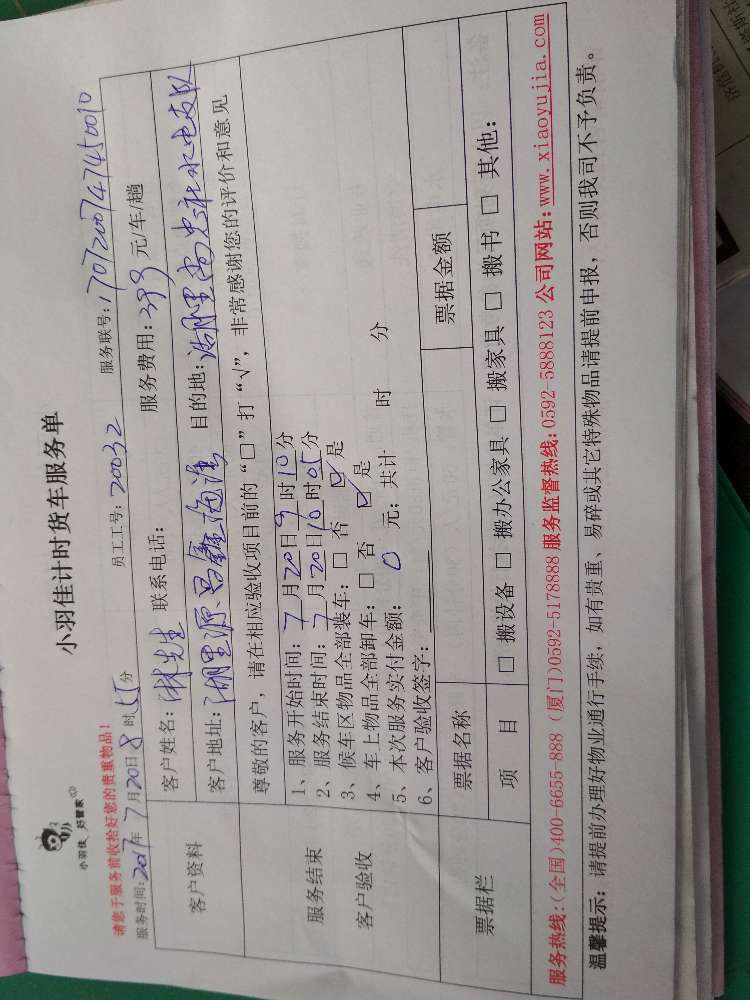 小羽佳 好管家
小羽佳计时货车服务单
请您于服务前收拾好您的贵重物品!
服务时间:2017年7月20日8时55分 员工工号:20032 服务联号:17072007474450010
客户资料
客户姓名:林先生 联系电话: 服务费用:399元/车/趟
客户地址:湖里源昌鑫海湾 目的地:湖里尚忠社水电支队
尊敬的客户,请在相应验收项目前的“□”打“√”,非常感谢您的评价和意见
服务结束
客户验收
1、服务开始时间:7月20日9时10分
2、服务结束时间:7月20日10时05分
3、候车区物品全部装车:□否 ☑是
4、车上物品全部卸车:□否 ☑是
5、本次服务实付金额:0元;共计 时 分
6、客户验收签字:
票据栏
票据名称 票据金额
项 目 □搬设备 □搬办公家具 □搬家具 □搬书 □其他:
服务热线:(全国)400-6655-888 (厦门)0592-5178888 服务监督热线:0592-5888123 公司网站:www.xiaoyujia.com
温馨提示:请提前办理好物业通行手续,如有贵重、易碎或其它特殊物品请提前申报,否则我司不予负责。